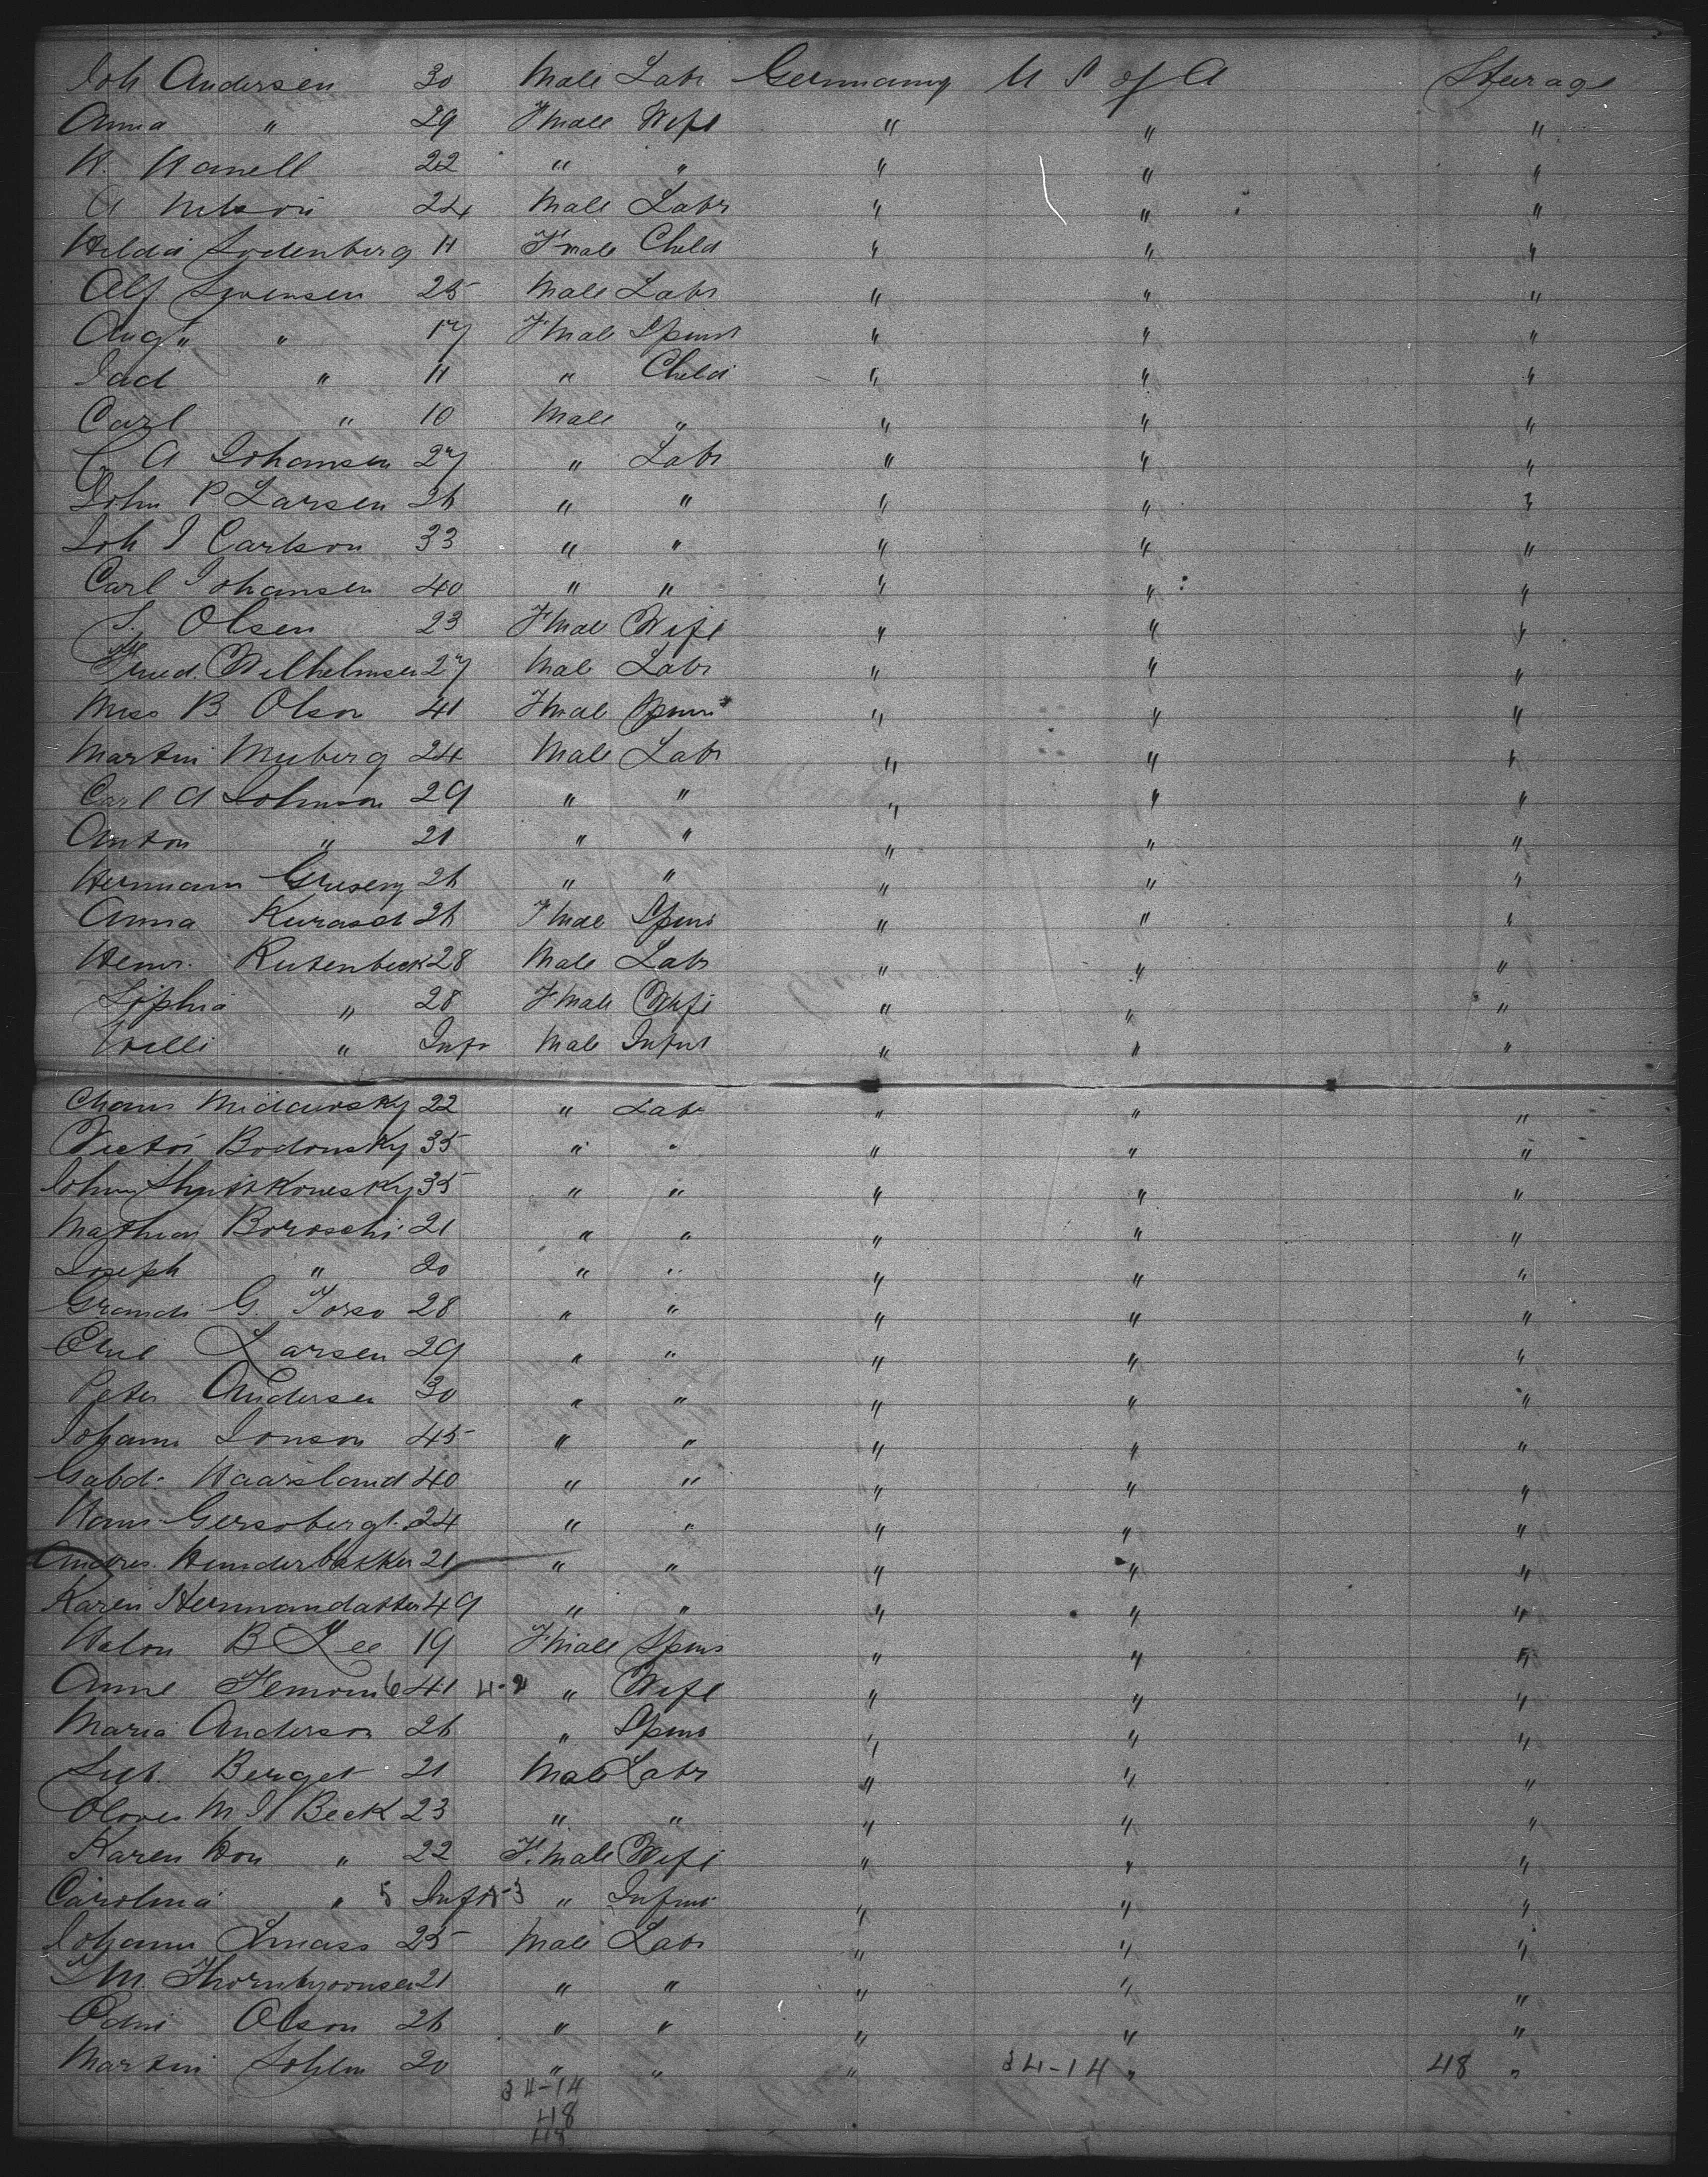 Joh Andersen 30 Male Labr Germany U S of A Steerage
Anna " 29 Fmale Wife " " "
N. Wanell 22 " " " " "
A Nelson 24 Male Labr " " "
Hilda Sodenberg 11 Fmale Child " " "
Alf Sorensen 25 Male Labr " " "
Aug" " 17 Fmale Spinst " " "
" 11 " Child " " "
Carl " 10 Male " " " "
C A Johansen 27 " Labr " " "
John P Larsen 26 " " " " "
Joh J Carlson 33 " " " " "
Carl Johansen 40 " " " " "
S. Olsen 23 Fmale Wife " " "
Fried. Wilhelmsen 27 Male Labr " " "
Miss B Olson 41 Fmale Spins " " "
Martin Muberg 24 Male Labr " " "
Carl A Johnson 29 " " " " "
Anton " 21 " " " " "
Hermann 26 " " " " "
Anna Kurasch 26 Fmale Spins " " "
Henr. Rutenbeck 28 Male Labr " " "
Sophia " 28 Fmale Wife " " "
Willi " Inft Male Infnt " " "
22 " Labr " " "
Victor Bodonsky 35 " " " " "
Johny 35 " " " " "
Mathias Boroschi 21 " " " " "
Joseph " 20 " " " " "
G. 28 " " " " "
Larsen 29 " " " " "
Peter Andersen 30 " " " " "
Johann Jonson 45 " " " " "
Gabd. Haarsland 40 " " " " "
Hans Gersobergt. 24 " " " " "
Andres. Hunderbakker 21 " " " " "
Karen Hermandatter 49 " " " " "
B Lee 19 Fmale Spins " " "
Anne 6 41 4-2 " Wife " " "
Maria Anderson 26 " Spins " " "
Berget 21 Male Labr " " "
M Beck 23 " " " " "
Karen " 22 F.male Wife " " "
Carolina " 5 Inft 5-3 " Infnt " " "
Johann 25 Male Labr " " "
M. Thornbjornsen 21 " " " " "
Olson 26 " " " " "
Martin 20 " " " 34-14 " 48 "
34-14
48
48